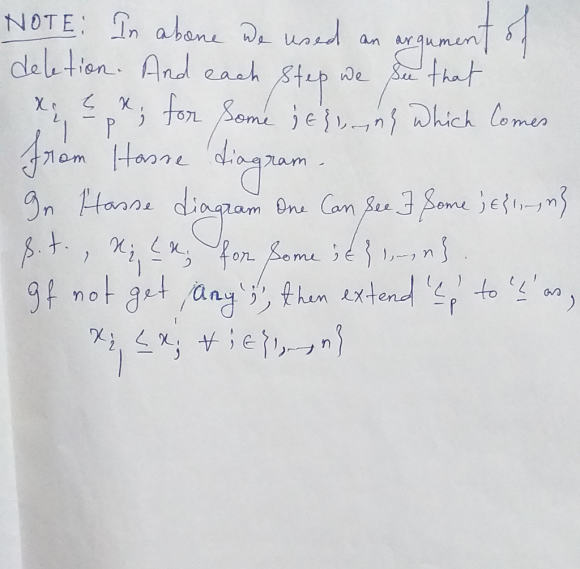 NOTE: In above we used an argument of
deletion. And each step we see that
x_{i_1} ≤_p x_j for some j∈{1,--,n} which comes
from Hasse diagram.
In Hasse diagram one can see ∃ some j∈{1,--,n}
s.t., x_{i_1} ≤ x_j for some j∈{1,--,n}.
If not get any 'j', then extend '≤_p' to '≤' as,
x_{i_1} ≤ x_j ∀ j∈{1,--,n}